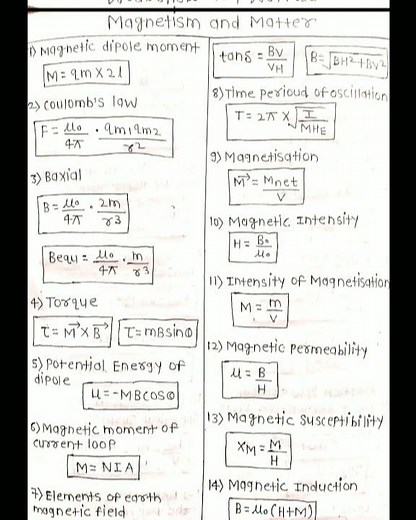 Magnetism and Matter
1) Magnetic dipole moment
M = qm x 2l
2) Coulomb's law
F = μ0/4π . qm1qm2/r2
3) Baxial
B = μ0/4π . 2m/r3
Bequ = μ0/4π . m/r3
4) Torque
τ = M⃗ x B⃗
τ = mBsinθ
5) Potential Energy of
dipole
u = -MBcosθ
6) Magnetic moment of
current loop
M = NIA
7) Elements of earth
magnetic field
tanδ = BV/VH
B = √BH²+BV²
8) Time perioud of oscillation
T = 2π x √I/MHE
9) Magnetisation
M⃗ = Mnet/V
10) Magnetic Intensity
H = B0/μ0
11) Intensity of Magnetisation
M = m/V
12) Magnetic Permeability
μ = B/H
13) Magnetic Susceptibility
XM = M/H
14) Magnetic Induction
B = μ0(H+M)